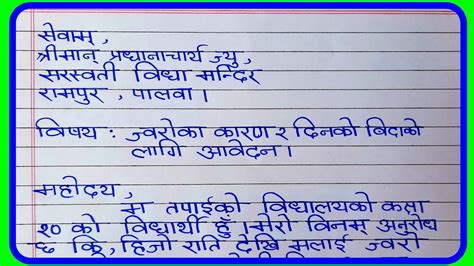 सेवाम् ,
श्रीमान् प्रधानाचार्य ज्यु ,
सरस्वती विधा मन्दिर
रामपुर , पालवा ।
विषय : ज्वरोका कारण २ दिनको बिदाको
लागि आवेदन ।
महोदय ,
म तपाईको विधालयको कक्षा
१० को विधार्थी हुँ । मेरो विनम् अनुरोध
छ कि , हिजो राति देखि मलाई ज्वरो